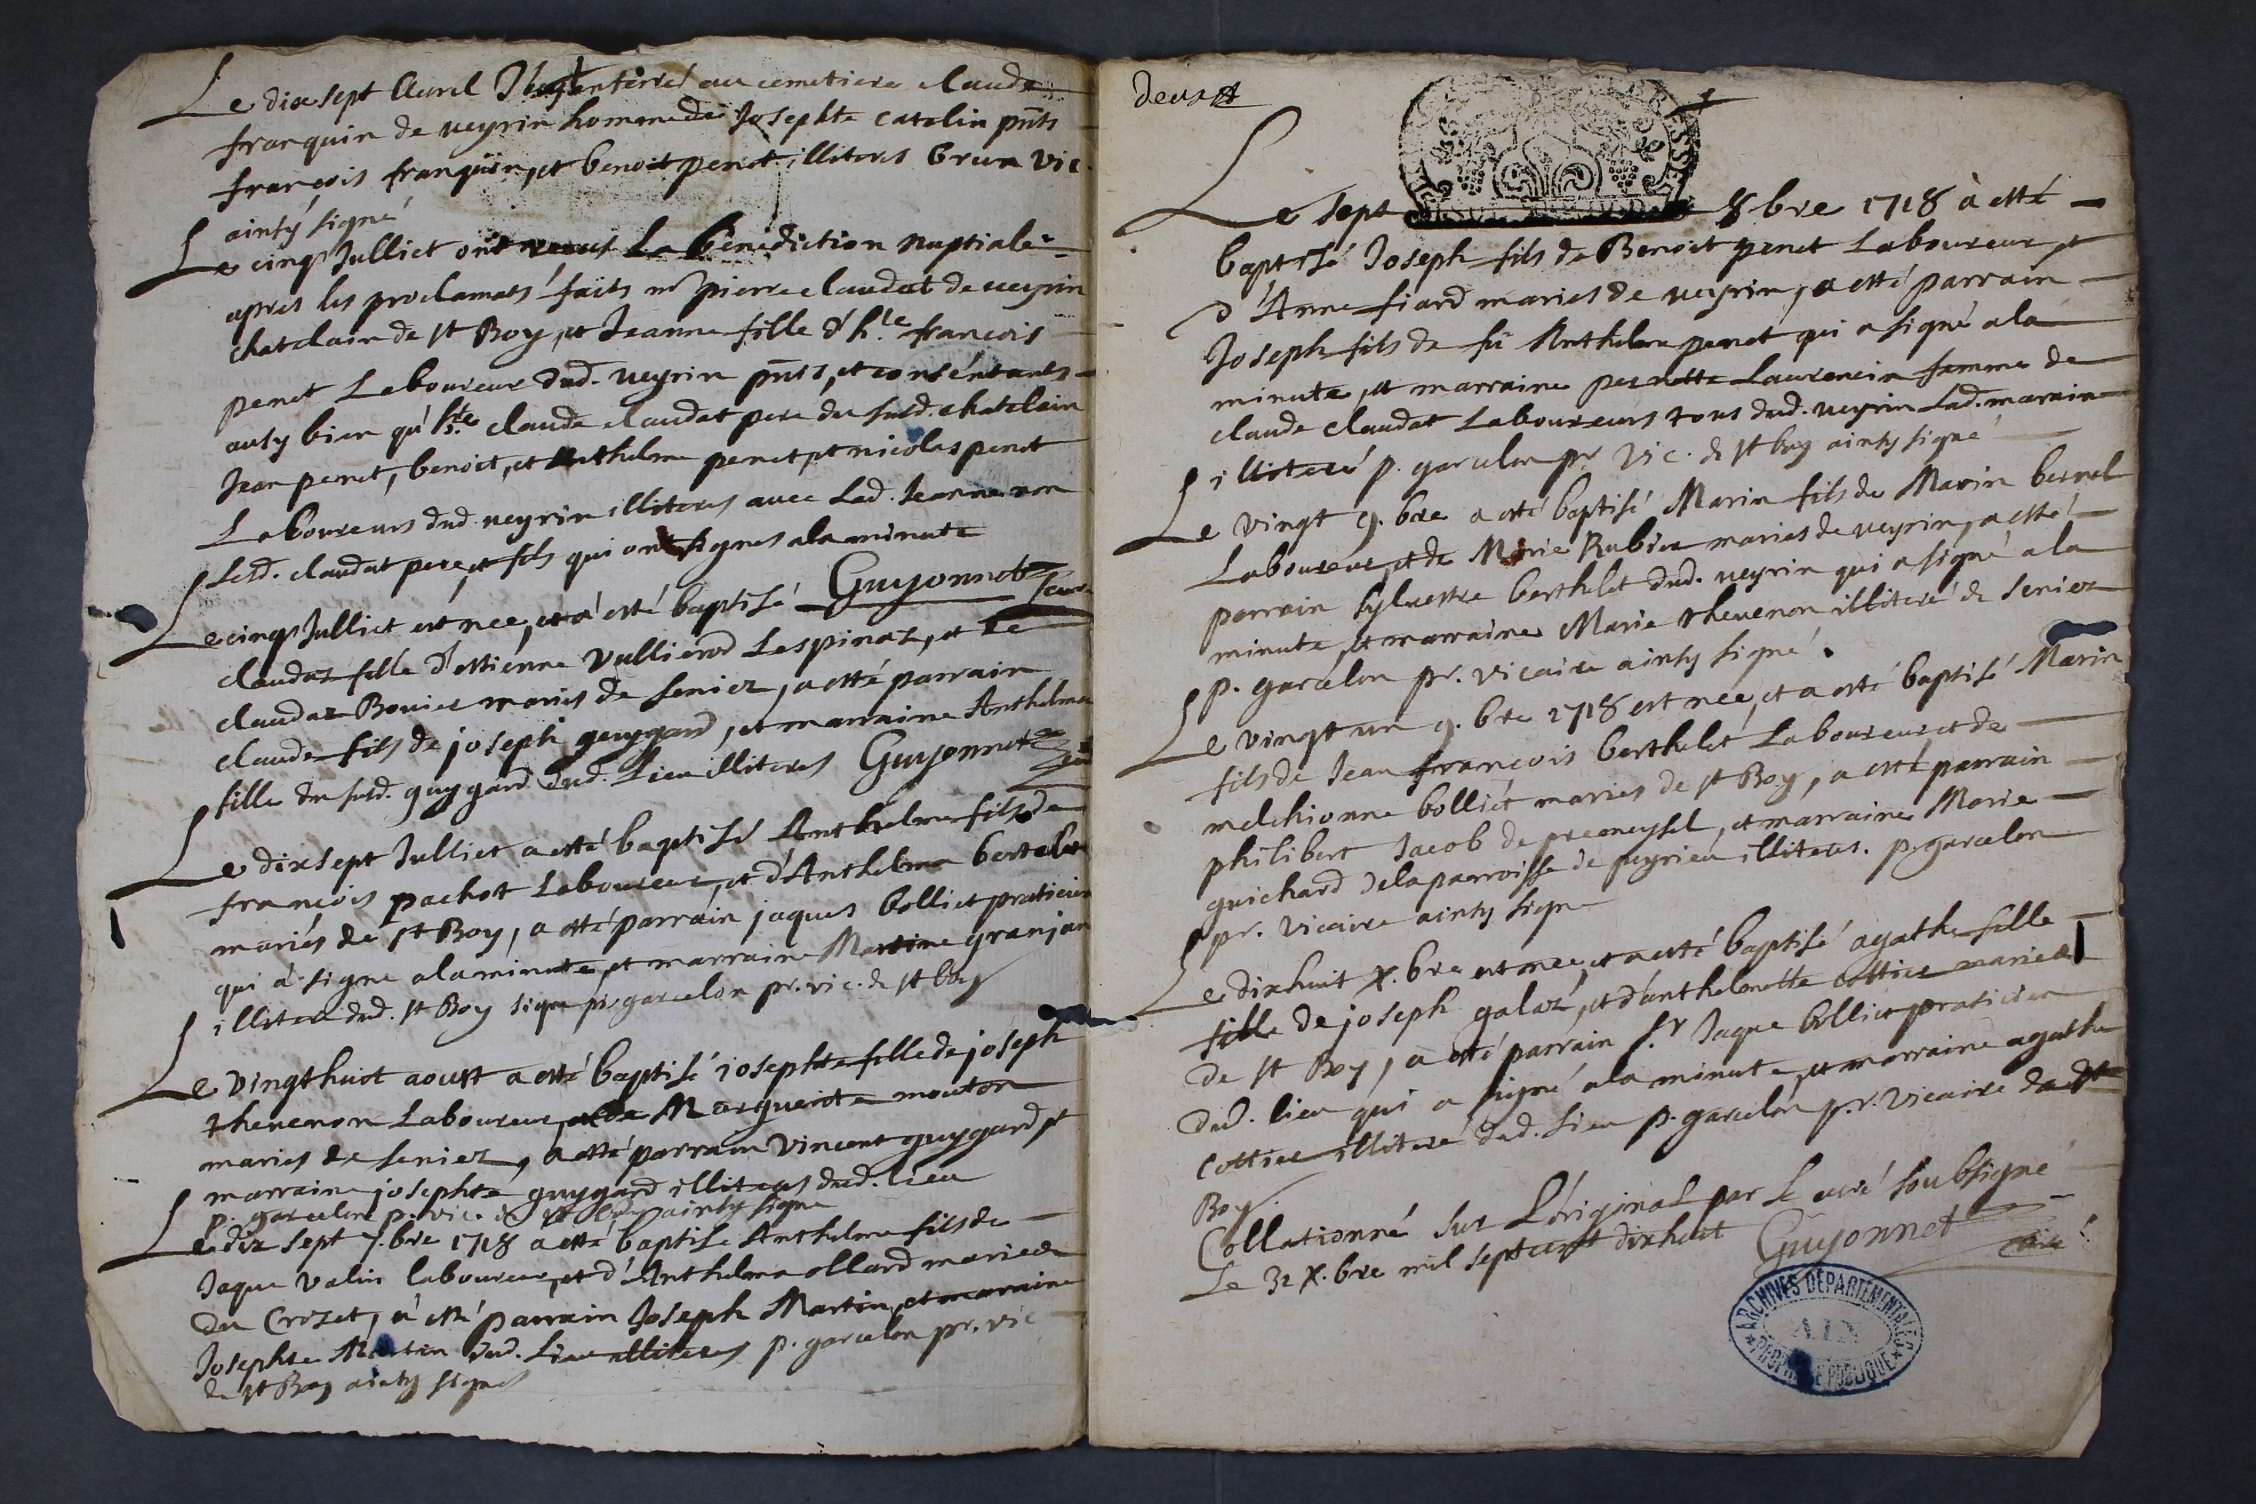 Le dix sept Avril enterré au cemetiere claude
franquin de veyrin homme de Josephte catelin pnts
francois franquin, et benoit penet illiteres brun vic.
ainsy signé
Le cinq Julliet ont receus La benediction nuptiale
apres les proclamats faits mr pierre claudat de veyrin
chatelain de st Boy, et Jeanne fille d'h.le francois
penet Laboureur dud. veyrin pnts, et consentants
ausy bien qu'h.te claude claudat pere du susd. chatelain
Jean penet, benoit, et Anthelme penet, et nicolas penet
Laboureurs dud. veyrin illiteres avec Lad. Jeanne non
Lesd. claudat pere, et fils qui ont signes a la minute
Le cinq Julliet est née, et a esté baptisé Guyonnet
claudaz fille d'estienne Vullierod Lespinaz, et de
claudaz Bouier maries de seniez, a esté parrain
claude fils de joseph guygard, et marraine Anthelma
fille du susd. guygard dud. Lieu illiteres Guyonnet
Le dixsept Julliet a esté baptisé Anthelme fils de
francois pachot Laboureur, et d'Anthelma bertelet
mariés de st Boy, a esté parrain jaques bolliet praticien
qui a signe a la minute, et marraine Martine granjan
illitere dud. st Boy signe p. garcelon pr. vic. de st boy
Le vingthuit aoust a esté baptisé josephte fille de joseph
thevenon Laboureur, et de Marguerite mouton
maries de seniez, a esté parrain Vincent guygard, et
marraine josephte guygard illiteres dud. lieu
p. garcelon p. vic. de st boy ainsy signe
Le dix sept 7.bre 1718 a esté baptisé Anthelme fils de
Jaque Valin laboureur, et d'Anthelma ollard maries
du Crozet, a esté parrain Joseph Martin, et marraine
Josephte Martin dud. Lieu illiteres p. garcelon pr. vic
de st Boy ainsy signes
deux
Le sept 8bre 1718 à esté
baptisé Joseph fils de Benoit penet Laboureur, et
d'Anne fiard maries de veyrin, a esté parrain
Joseph fils de fû Anthelme penet qui a signé a la
minute, et marraine pernette Laurencin femme de
claude claudat Laboureurs tous dud. veyrin Lad. maraine
illiteré p. garcelon pr vic. de st boy ainsy signé
Le vingt 9.bre a esté baptisé Marin fils de Marin bernel
Laboureur, et de Marie Rubier maries de veyrin, a esté
parrain sylvestre berthelet dud. veyrin qui a signé a la
minute, et marraine Marie thevenon illiteré de seniez
p. garcelon pr. vicaire ainsy signé.
Le vingt un 9.bre 1718 est nee, et a esté baptisé Marin
fils de Jean francois berthelet Laboureur et de
melchionne bolliet maries de st Boy, a esté parrain
philibert Jacob de premeysel, et marraine Marie
guichard de la parroisse de peyrieu illiteres. p. garcelon
pr. vicaire ainsy signe
Le dixhuit x.bre est nee, et a esté baptisé agathe fille
fille de joseph galaz, et d'anthelmette cottier maries
de st Boy, a esté parrain s.r Jaque bolliet praticien
dud. lieu qui a signé a la minute, et marraine agathe
cottier illiteré dud. Lieu p. garcelon p.r. vicaire de st
Boy.
Collationné sur L'original par le curé soubsigné
Le 31 x.bre mil septcent dixhuit Guyonnet
curé
ARCHIVES DÉPARTEMENTALES
AIN
PROPRIÉTÉ PUBLIQUE